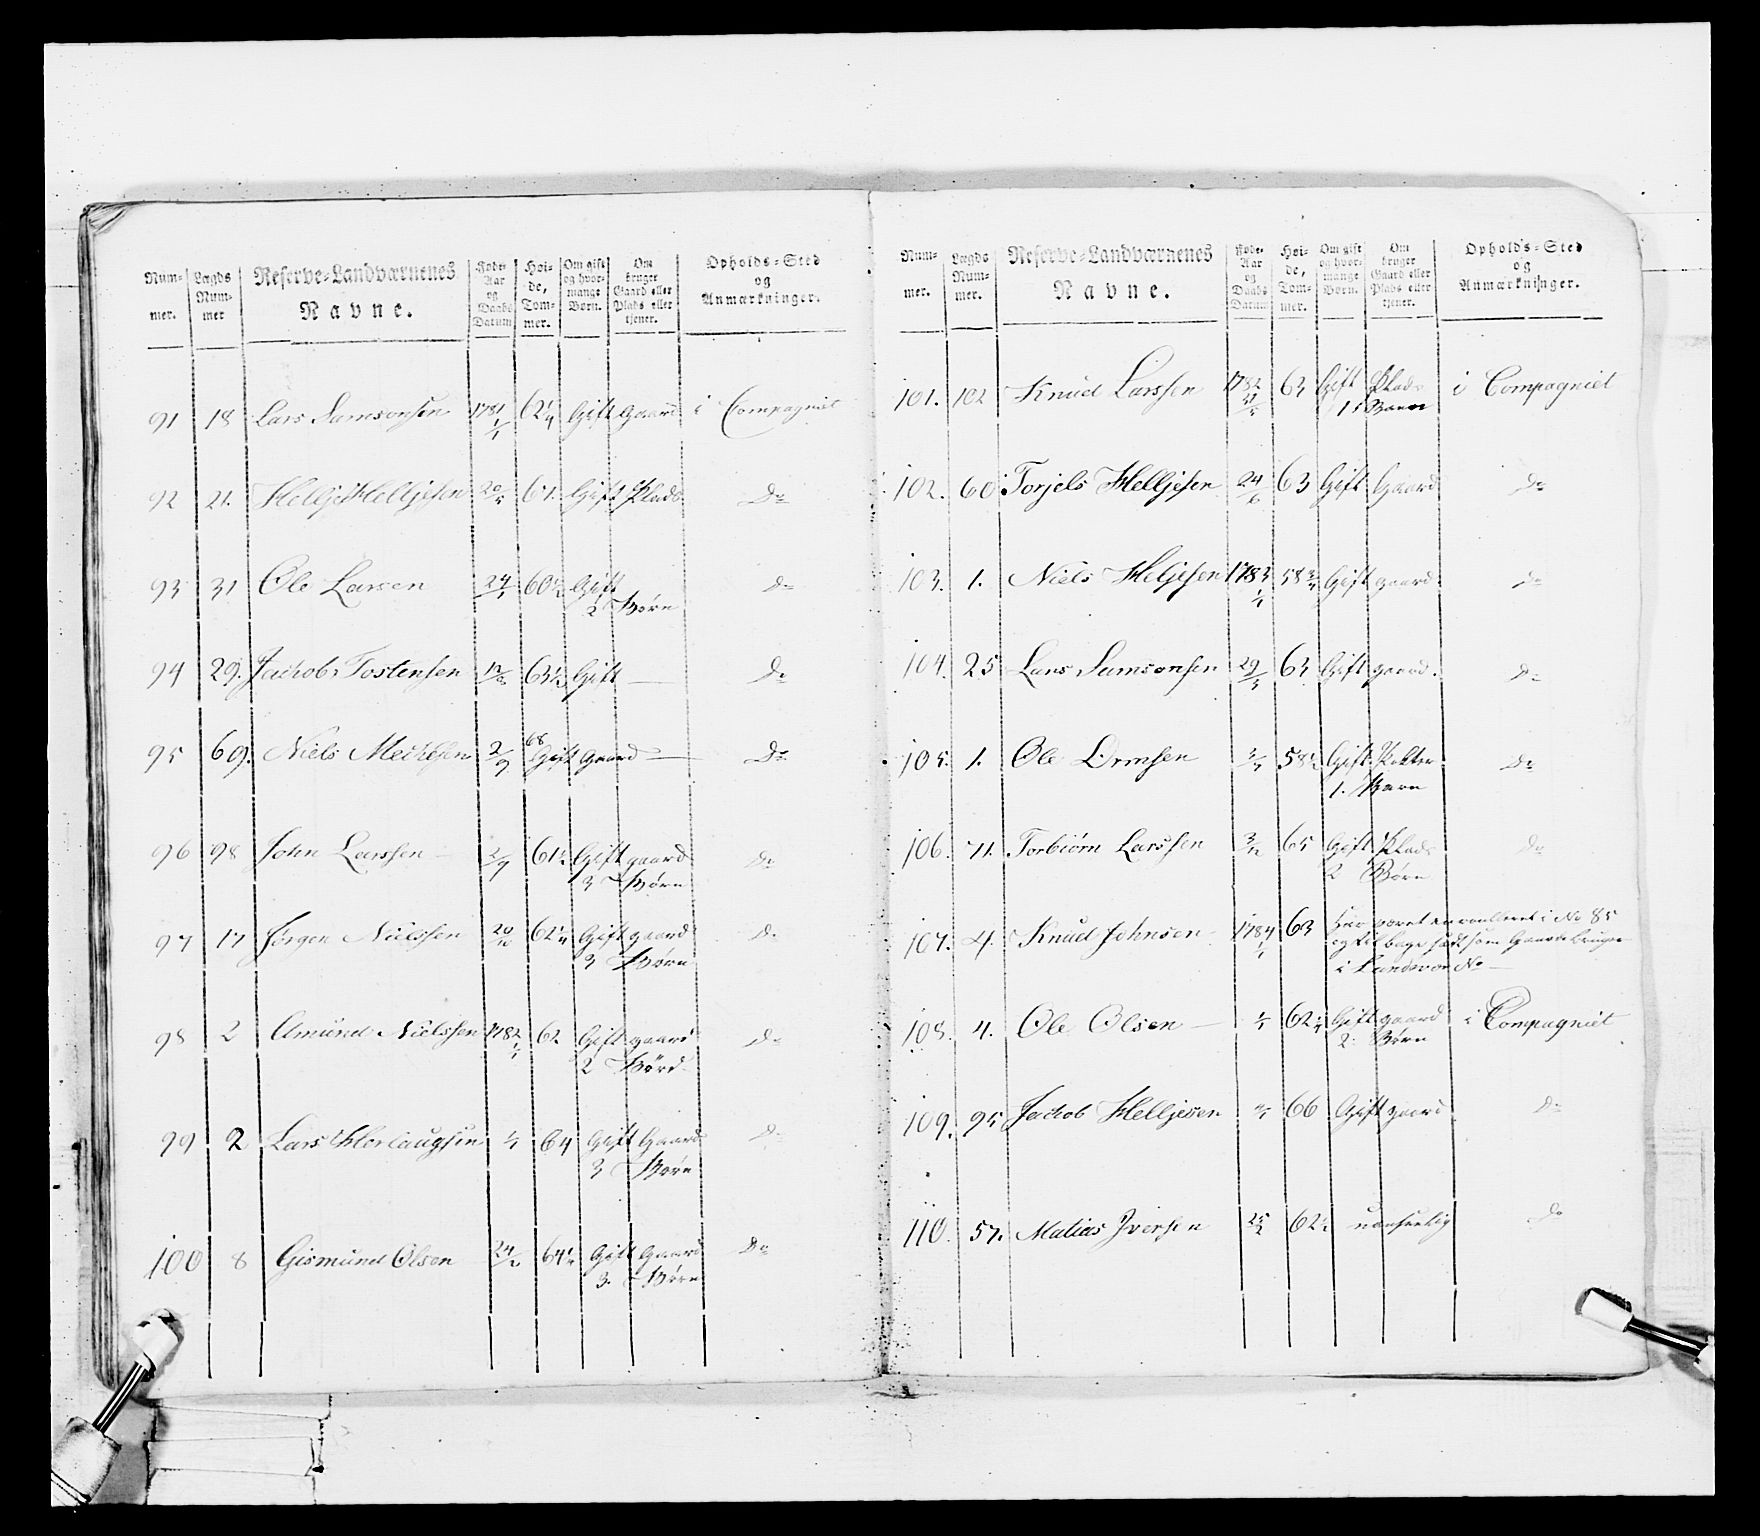 Num- mer. Lægds Num- mer Reserve-Landværnenes Navne. Føde- Aar og Daabs Datum Høi- de, Tom- mer. Om gift og hvor- mange Børn. Om bruger Gaard eller Plads eller tjener. Opholds-Sted og Anmærkninger.
91 18 Lars Samsonsen 1781 1/1 62 1/4 Gift gaard i Compagniet
92 21. Hellje Helljesen 20/5 61. Gift Plads Do
93 31 Ole Larsen 24/1 60 1/2 Gift Do
2 Børn
94 29. Jachob Tostensen 12/8 63 1/2 Gift — Do
95 69. Niels Michelsen 2/9 68 Gift gaard — Do
96 98 John Larssen 61 1/2 Gift gaard Do
3 Børn
97 17 Jørgen Nielssen 20/10 62 1/4 Gift gaard Do
3 Børn
98 2 Amund Nielssen 1782 1/1 62 Gift gaard Do
2 Børn
99 2 Lars Horlaugsen 1/1 64 Gift Gaard Do
3 Børn
100 8 Gismund Olsen 24/2 64 1/2 Gift Gaard Do
3. Børn
Num- mer. Lægds Num- mer. Reserve-Landværnenes Navne. Føde- Aar og Daabs Datum Høi- de, Tom- mer. Om gift og hvor- mange Børn. Om bruger Gaard eller Plads eller tjener. Opholds-Sted og Anmærkninger.
101. 102 Knud Larssen 1782 21/5 63 Gift Plads i Compagniet
1 Barn
102. 60. Torjels Helljesen 24/6 63 Gift Gaard Do
103. 1. Niels Heljesen 1783 1/1 58 3/4 Gift gaard Do
104. 25 Lars Samsonsen 29/5 63 Gift gaard. Do
105. 1. Ole Ormsen 58 1/2 Gift Do
1. Barn
106. 71. Torbiørn Larssen 3/12 65 Gift Plads Do
2 Børn
107. 4. Knud Johnsen 1784 1/1 63 Har været enroulleret i No 85
og tilbage sadt som Gaardbruger
i Landværn No —
108. 4. Ole Olsen — 1/1 62 1/4 Gift gaard i Compagniet
2 Børn
109. 95 Jachob Helljesen 66 Gift gaard Do
110. 57. Matias Iversen 25/2 62 1/2 uanseelig Do